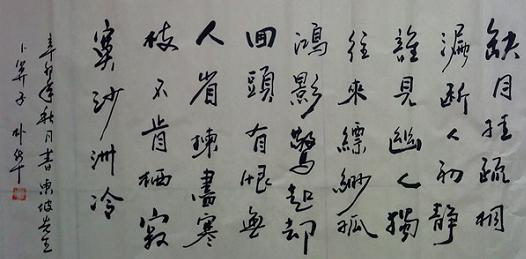 缺月挂疏桐
漏断人初静
誰見幽人獨
往來縹緲孤
鴻影驚起却
回頭有恨無
人省揀盡寒
枝不肯栖寂
寞沙洲冷
辛卯年秋月書東坡先生
卜算子